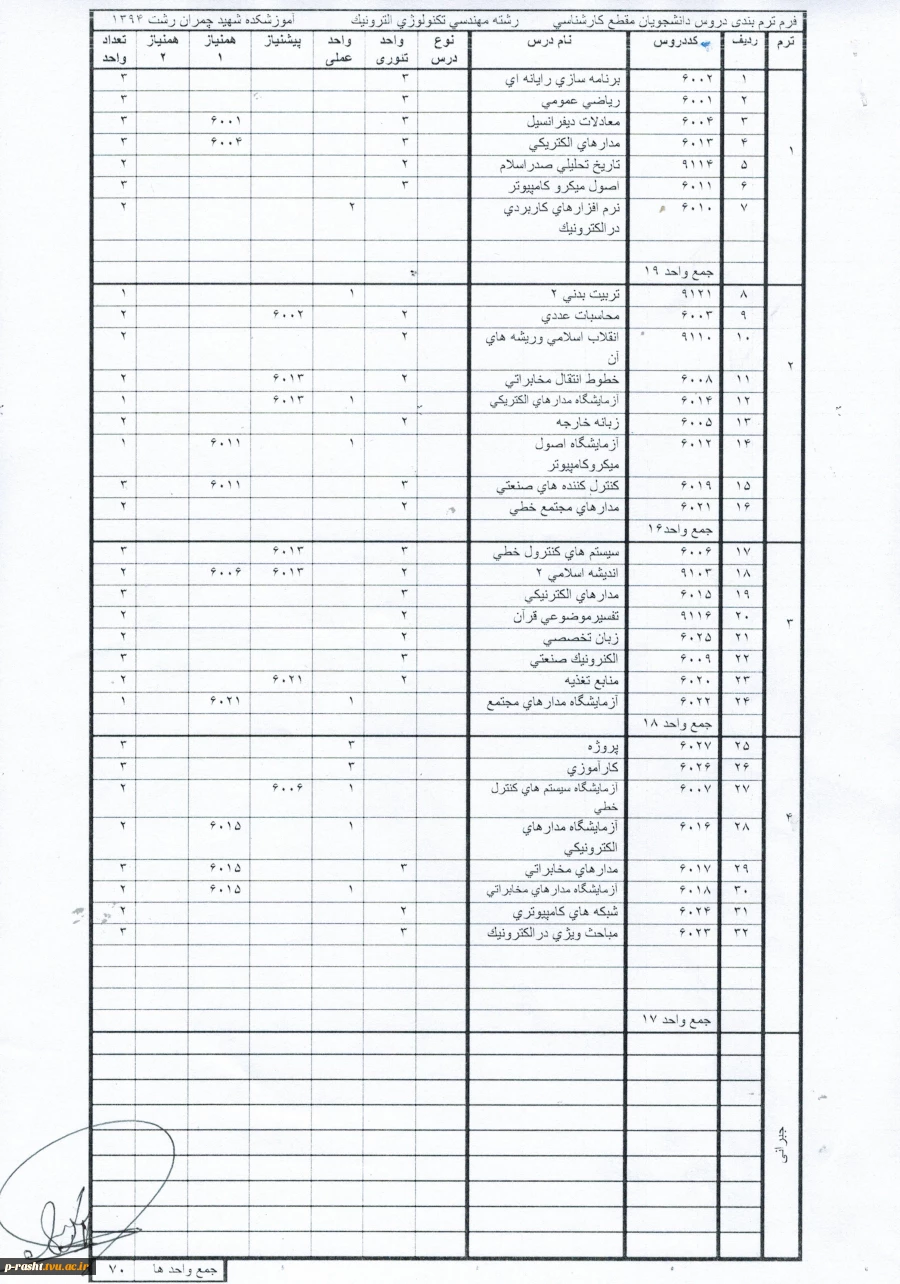 فرم ترم بندی دروس دانشجویان مقطع کارشناسي رشته مهندسي تکنولوژي الترونيك آموزشکده شهید چمران رشت ۱۳۹۴
ترم ردیف کددروس نام درس نوع درس واحد تئوری واحد عملی پیشنیاز همنیاز ۱ همنیاز ۲ تعداد واحد
۱
۱ ۶۰۰۲ برنامه سازي رایانه اي ۳ ۳
۲ ۶۰۰۱ ریاضي عمومي ۳ ۳
۳ ۶۰۰۴ معادلات دیفرانسیل ۳ ۶۰۰۱ ۳
۴ ۶۰۱۳ مدارهاي الکتریکي ۳ ۶۰۰۴ ۳
۵ ۹۱۱۴ تاریخ تحلیلي صدراسلام ۲ ۲
۶ ۶۰۱۱ اصول میکرو کامپیوتر ۳ ۳
۷ ۶۰۱۰ نرم افزارهاي کاربردي ۲ ۲
درالکترونيك
جمع واحد ۱۹
۲
۸ ۹۱۲۱ تربیت بدني ۲ ۱ ۱
۹ ۶۰۰۳ محاسبات عددي ۲ ۶۰۰۲ ۲
۱۰ ۹۱۱۰ انقلاب اسلامي وریشه هاي ۲ ۲
آن
۱۱ ۶۰۰۸ خطوط انتقال مخابراتي ۲ ۶۰۱۳ ۲
۱۲ ۶۰۱۴ آزمایشگاه مدارهاي الکتریکي ۱ ۶۰۱۳ ۱
۱۳ ۶۰۰۵ زبانه خارجه ۲ ۲
۱۴ ۶۰۱۲ آزمایشگاه اصول ۱ ۶۰۱۱ ۱
میکروکامپیوتر
۱۵ ۶۰۱۹ کنترل کننده هاي صنعتي ۳ ۶۰۱۱ ۳
۱۶ ۶۰۲۱ مدارهاي مجتمع خطي ۲ ۲
جمع واحد۱۶
۳
۱۷ ۶۰۰۶ سیستم هاي کنترول خطي ۳ ۶۰۱۳ ۳
۱۸ ۹۱۰۳ اندیشه اسلامي ۲ ۲ ۶۰۱۳ ۶۰۰۶ ۲
۱۹ ۶۰۱۵ مدارهاي الکترنیکي ۳ ۳
۲۰ ۹۱۱۶ تفسیرموضوعي قرآن ۲ ۲
۲۱ ۶۰۲۵ زبان تخصصي ۲ ۲
۲۲ ۶۰۰۹ الکنرونيك صنعتي ۳ ۳
۲۳ ۶۰۲۰ منابع تغذیه ۲ ۶۰۲۱ ۲
۲۴ ۶۰۲۲ آزمایشگاه مدارهاي مجتمع ۱ ۶۰۲۱ ۱
جمع واحد ۱۸
۴
۲۵ ۶۰۲۷ پروژه ۳ ۳
۲۶ ۶۰۲۶ کارآموزي ۳ ۳
۲۷ ۶۰۰۷ ازمایشگاه سیستم هاي کنترل ۱ ۶۰۰۶ ۲
خطي
۲۸ ۶۰۱۶ آزمایشگاه مدارهاي ۱ ۶۰۱۵ ۲
الکترونیکي
۲۹ ۶۰۱۷ مدارهاي مخابراتي ۳ ۶۰۱۵ ۳
۳۰ ۶۰۱۸ آزمایشگاه مدارهاي مخابراتي ۱ ۶۰۱۵ ۲
۳۱ ۶۰۲۴ شبکه هاي کامپیوتري ۲ ۲
۳۲ ۶۰۲۳ مباحث ویژي درالکترونيك ۳ ۳
جمع واحد ۱۷
جبرانی
جمع واحد ها ۷۰
p-rasht.tvu.ac.ir